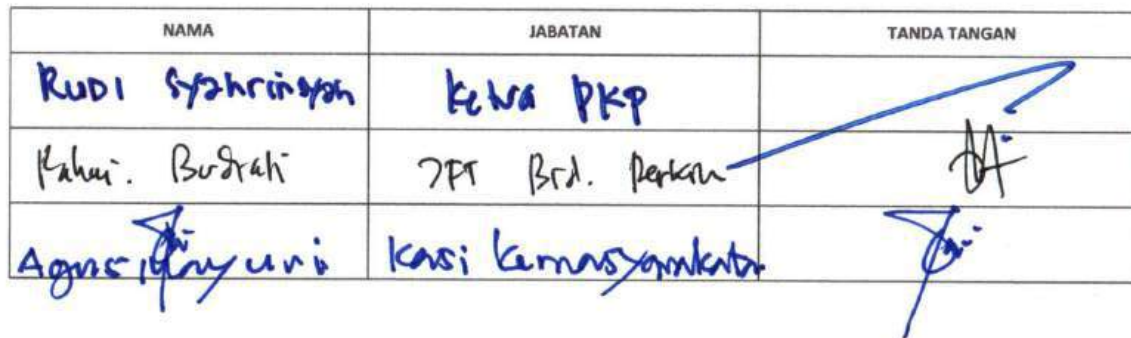 NAMA JABATAN TANDA TANGAN
RUDI Syahrinsyah Ketua PKP
Budrati JFT Brd. Perkim
Agus Kasi Kemasyarakatan